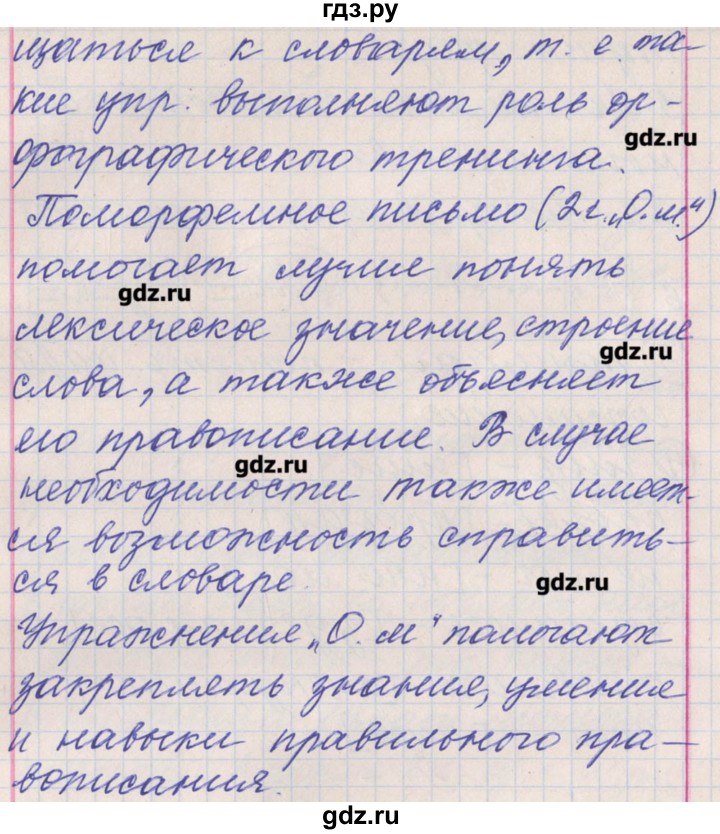 гдз.ру
щаться к словарям, т. е. та-
кие упр. выполняют роль ор-
gdz.ru
фографического тренинга.
Поморфемное письмо (2 г. „О.м.“)
помогает лучше понять
gdz.ru
лексическое значение, строение
gdz.ru
слова, а также объясняет
его правописание. В случае
gdz.ru
необходимости также имеет-
ся возможность справить-
ся в словаре.
gdz.ru
Упражнения „О. м“ помогают
закреплять знания, умения
и навыки правильного пра-
вописания.
gdz.ru